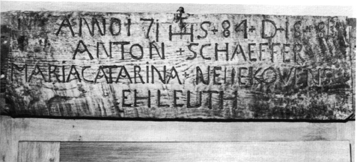 ANNO 1 71 IHS + 84 · D · 16
ANTON + SCHAEFFER
MARIA CATARINA · NEUEKOVEN
EHLEUTH